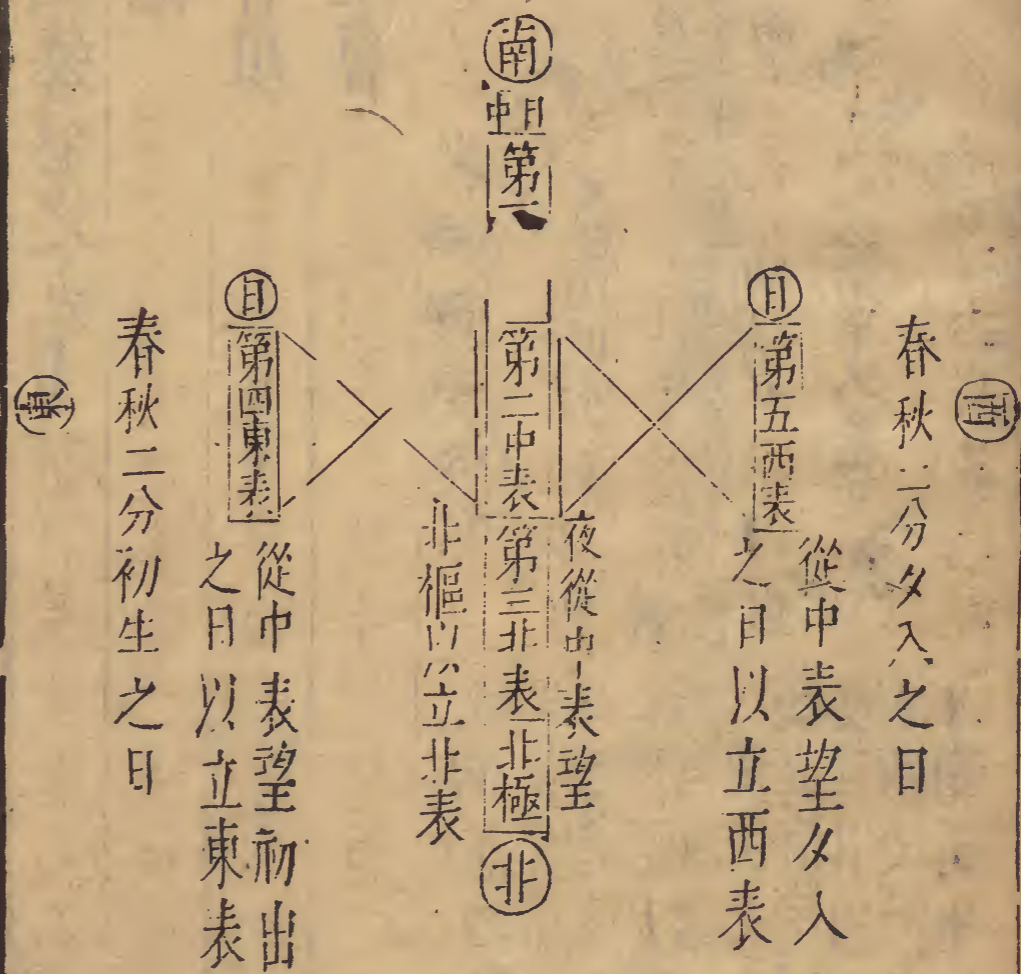 西
春秋二分夕入之日
日
第五西表
從中表望夕入
之日以立西表
南
日中
第一
第二中表
第三北表
北極
北
夜從中表望
北樞以立北表
日
第四東表
從中表望初出
之日以立東表
春秋二分初生之日
東